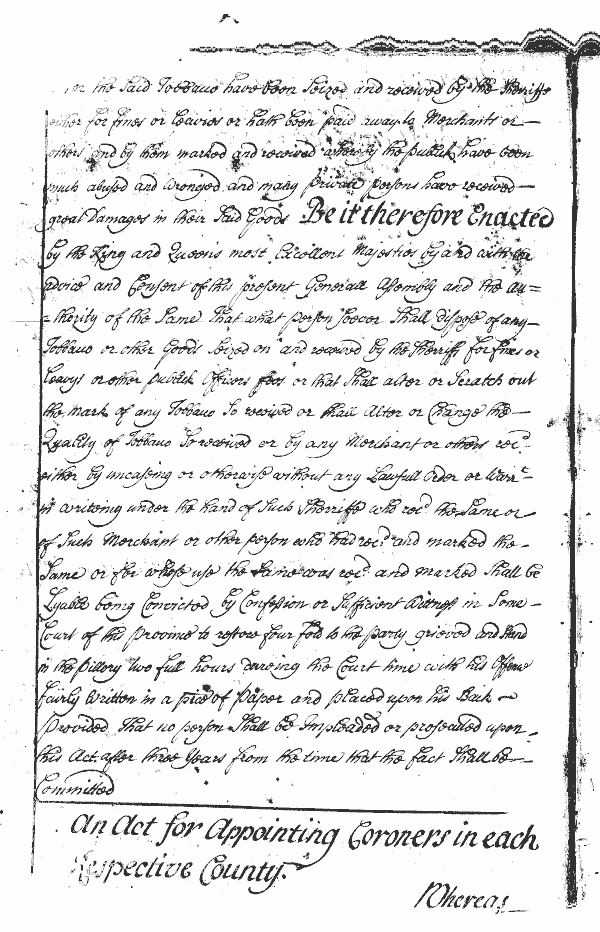 the Said Tobbacco have been Seized and received by the Sherriffe
either for fines or Leavies or hath been paid away to Merchants or —
others and by them marked and received whereby the publick have been
much abused and Wronged and many private persons have received —
great Damages in their Said Goods Be it therefore Enacted
by the King and Queens most Excellent Majesties by and with the
advice and Consent of this present Generall Assembly and the au=
=thority of the Same That what person Soever Shall dispose of any —
Tobbacco or other Goods Seized on and received by the Sherriffe for fines or
Leavys or other publick Officers fees or that Shall alter or Scratch out
the mark of any Tobbacco So received or Shall Alter or Change the —
Quallity of Tobbacco So received or by any Merchant or others recd.
either by uncaseing or otherwise without any Lawfull Order or Warrt.
in writeing under the hand of Such Sherriffe who recd the Same or
of Such Merchant or other person who had recd. and marked the —
Same or for whose use the Same was recd. and marked Shall be
Lyable being Convicted by Confession or Sufficient Witness in Some —
Court of this Province to restore four fold to the party grieved and Stand
in the Pillory two full hours dureing the Court time with his Offence
fairly Written in a piece of Paper and placed upon his Back —
Provided That no person Shall be Impleaded or prosecuted upon —
this Act after three Years from the time that the fact Shall be —
Committed
An Act for Appointing Coroners in each
Respective County.
Whereas